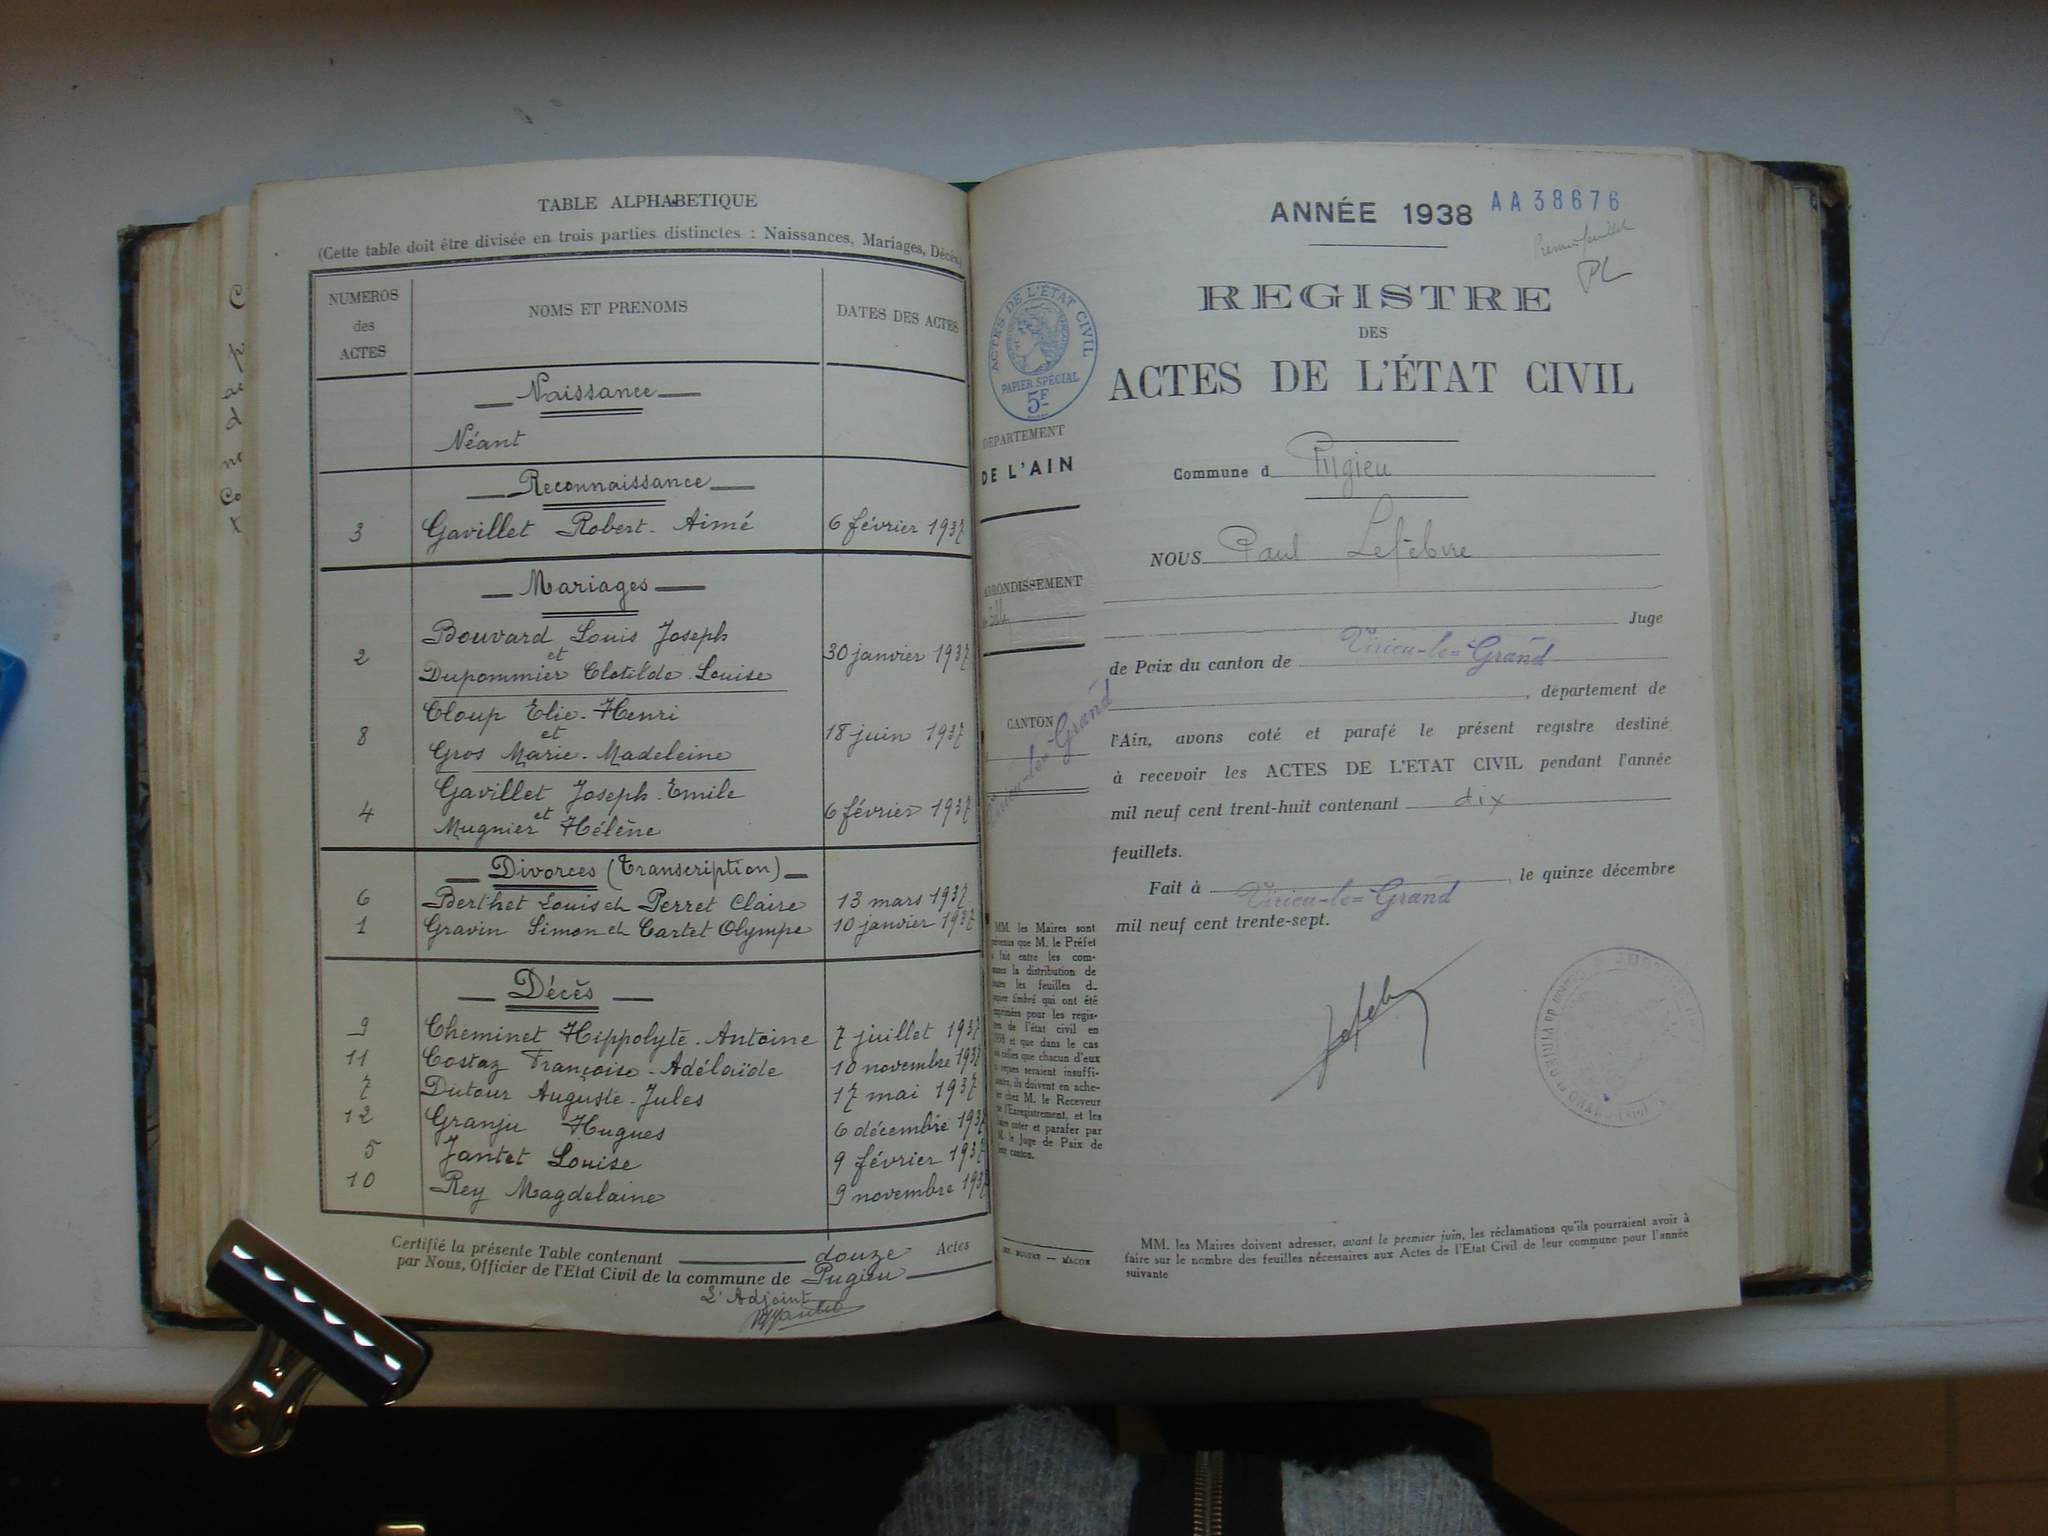 TABLE ALPHABETIQUE
(Cette table doit être divisée en trois parties distinctes : Naissances, Mariages, Décès)
NUMEROS des ACTES
NOMS ET PRENOMS
DATES DES ACTES
Naissance
Néant
Reconnaissance
3 Gavillet Robert-Aimé 6 février 1937
Mariages
Bouvard Louis Joseph
2 et 30 janvier 1937
Dupommier Clotilde-Louise
Cloup Elie-Henri
8 et 18 juin 1937
Gros Marie-Madeleine
Gavillet Joseph-Emile
4 et 6 février 1937
Mugnier Hélène
Divorces (Transcription)
6 Berthet Louis et Perret Claire 13 mars 1937
1 Gravin Simon et Cartet Olympe 10 janvier 1937
Décès
9 Cheminet Hippolyte-Antoine 7 juillet 1937
11 Costaz Françoise-Adélaïde 10 novembre 1937
7 Dutour Auguste-Jules 17 mai 1937
12 Granju Hugues 6 décembre 1937
5 Jantet Louise 9 février 1937
10 Rey Magdelaine 9 novembre 1937
Certifié la présente Table contenant douze Actes
par Nous, Officier de l'Etat Civil de la commune de Pugieu
L'Adjoint
ANNÉE 1938 AA38676
Premier feuillet
PL
REGISTRE
DES
ACTES DE L'ÉTAT CIVIL
ACTES DE L'ÉTAT CIVIL
PAPIER SPÉCIAL
5F
DEPARTEMENT
DE L'AIN
ARRONDISSEMENT
CANTON
Virieu-le-Grand
Commune d Pugieu
NOUS Paul Lefebvre
Juge
de Paix du canton de Virieu-le-Grand
, département de
l'Ain, avons coté et parafé le présent registre destiné
à recevoir les ACTES DE L'ETAT CIVIL pendant l'année
mil neuf cent trent-huit contenant dix
feuillets.
Fait à Virieu-le-Grand, le quinze décembre
mil neuf cent trente-sept.
MM. les Maires sont
prévenus que M. le Préfet
a fait entre les com-
munes la distribution de
toutes les feuilles d
papier timbré qui ont été
imprimées pour les regis-
tres de l'état civil en
1938 et que dans le cas
où celles que chacun d'eux
a reçues seraient insuffi-
santes, ils doivent en ache-
ter chez M. le Receveur
de l'Enregistrement, et les
faire coter et parafer par
M. le Juge de Paix de
leur canton.
MACON
MM. les Maires doivent adresser, avant le premier juin, les réclamations qu'ils pourraient avoir à
faire sur le nombre des feuilles nécessaires aux Actes de l'Etat Civil de leur commune pour l'année
suivante